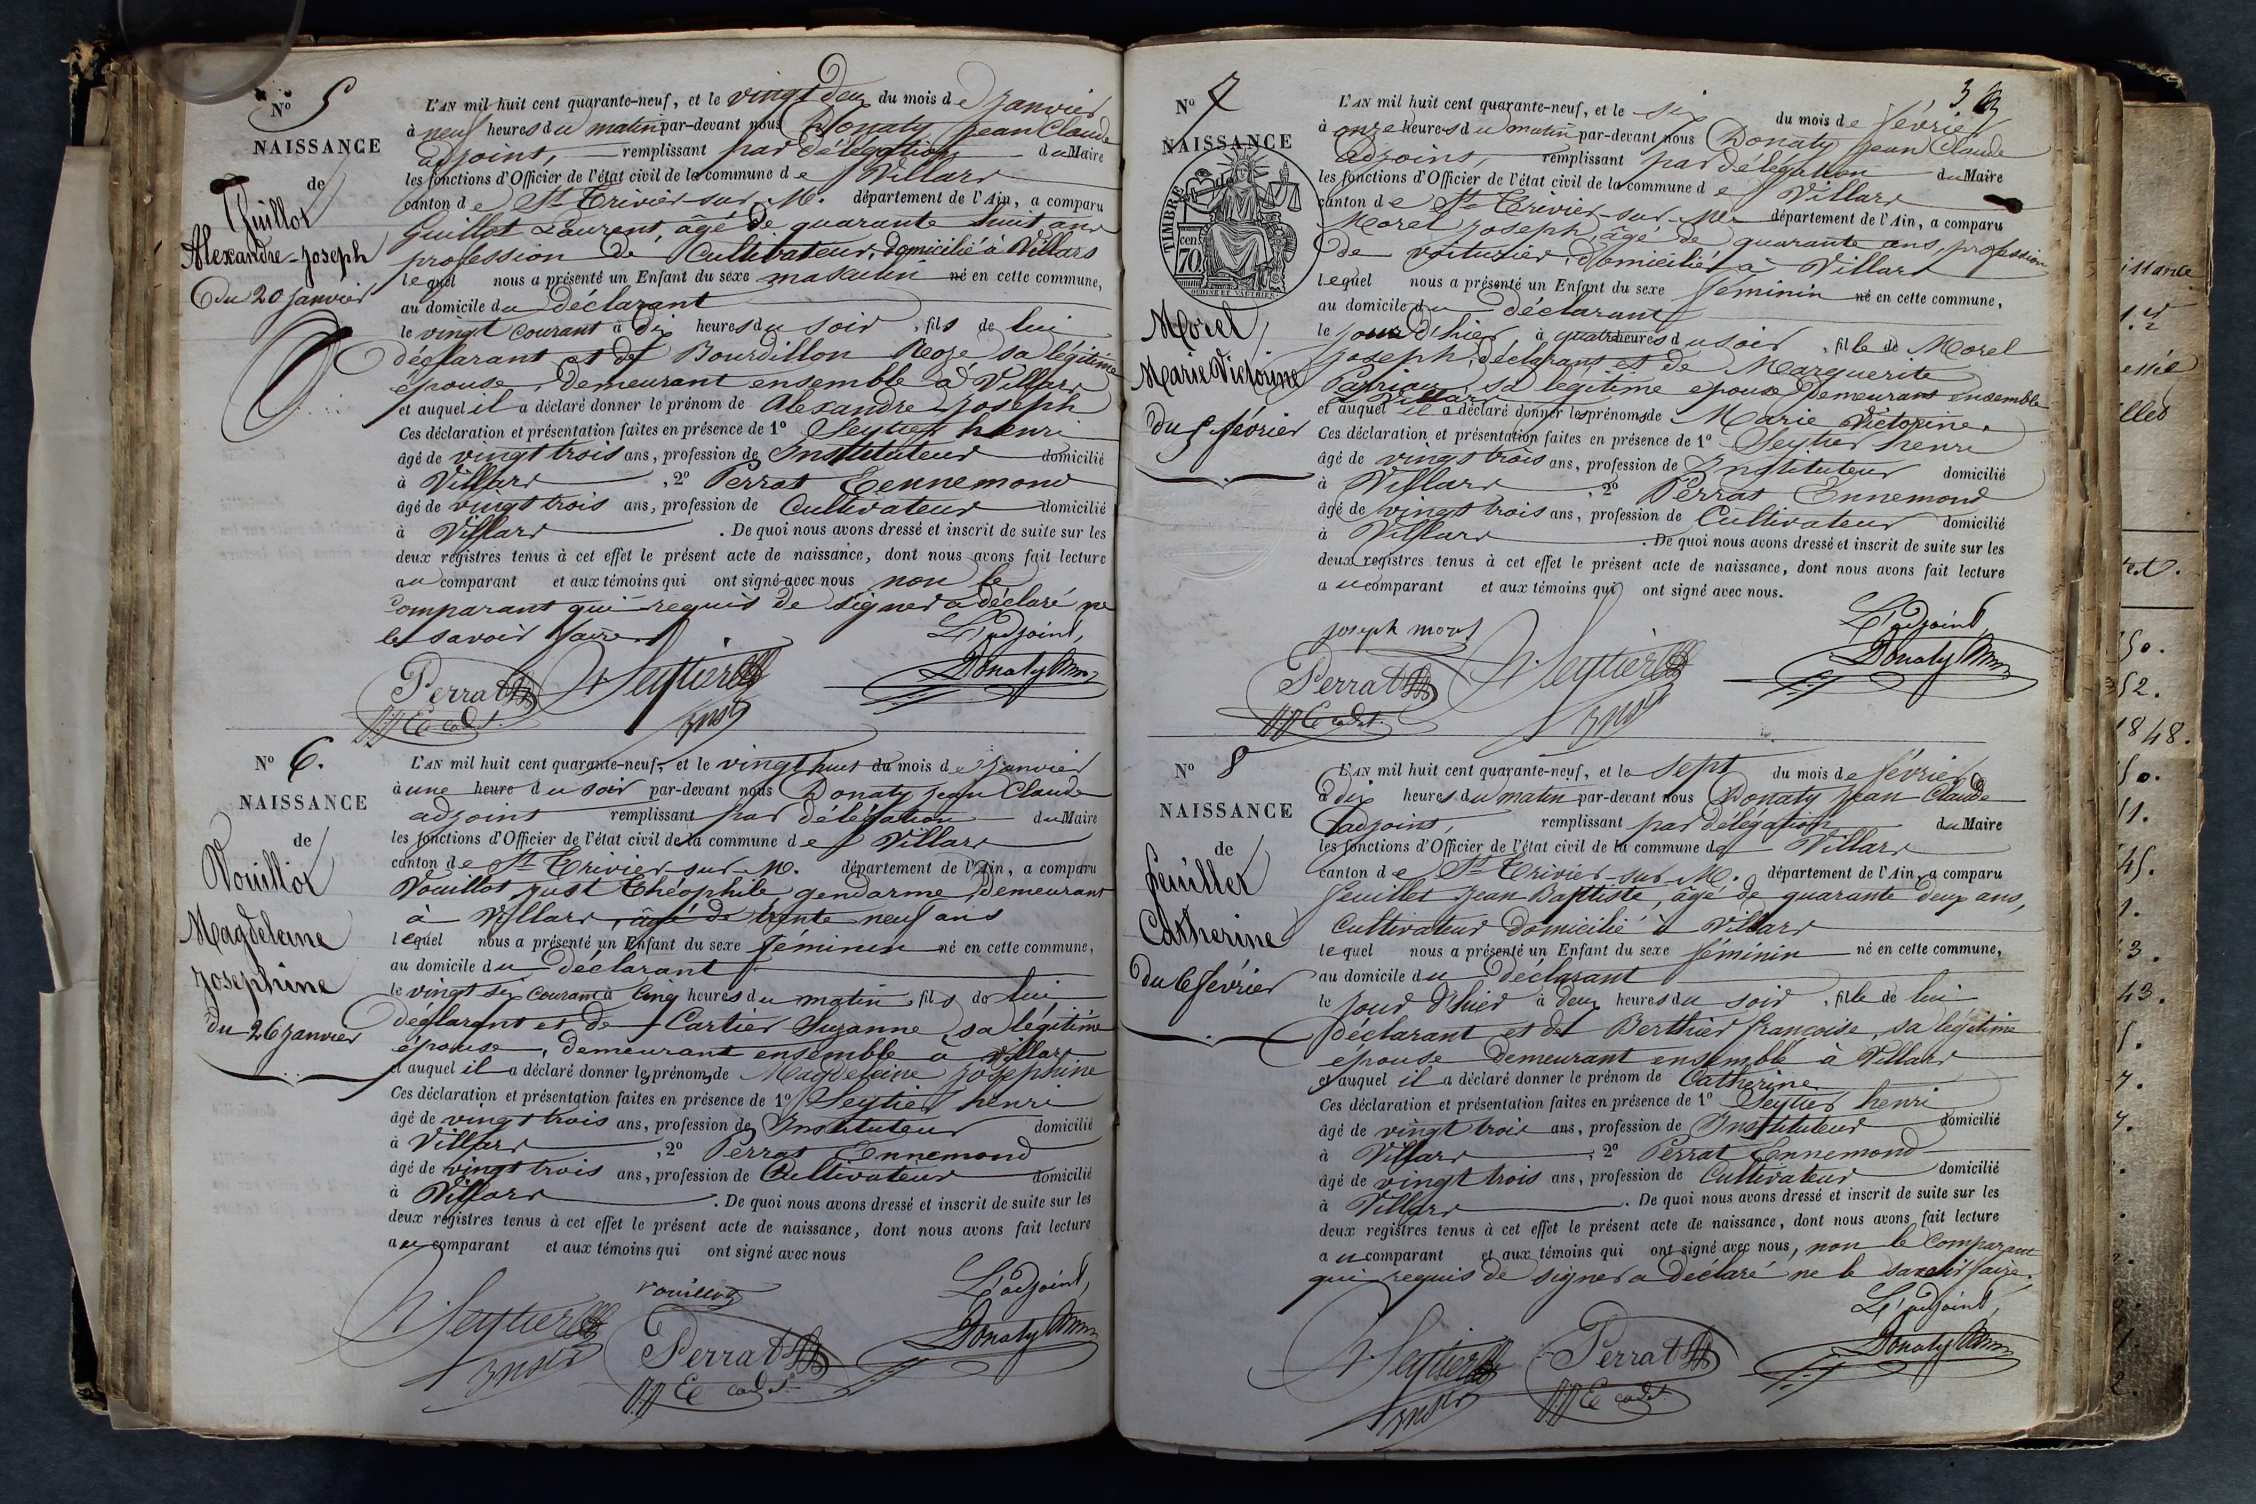 N° 5
NAISSANCE
de
Guillot
Alexandre-Joseph
du 20 janvier
L'AN mil huit cent quarante-neuf, et le vingt deux du mois de janvier
à neuf heures du matin par-devant nous Donaty Jean Claude
adjoint, remplissant par délégation du Maire
les fonctions d'Officier de l'état civil de la commune de Villars
canton de St Trivier-sur-M. département de l'Ain, a comparu
Guillot Laurent, âgé de quarante huit ans
profession de Cultivateur, domicilié à Villars
lequel nous a présenté un Enfant du sexe masculin né en cette commune,
au domicile du déclarant
le vingt courant à dix heures du soir, fils de lui
déclarant et de Bourdillon Roze sa légitime
épouse, demeurant ensemble à Villars
et auquel il a déclaré donner le prénom de Alexandre Joseph
Ces déclaration et présentation faites en présence de 1° Seytier henri
âgé de vingt trois ans, profession de Instituteur domicilié
à Villars, 2° Perrat Eennemond
âgé de vingt trois ans, profession de Cultivateur domicilié
à Villars. De quoi nous avons dressé et inscrit de suite sur les
deux registres tenus à cet effet le présent acte de naissance, dont nous avons fait lecture
au comparant et aux témoins qui ont signé avec nous non le
comparant qui requis de signer a déclaré ne
le savoir faire.
L'adjoint,
Perrat Seytier Donaty
cadet
N° 6.
NAISSANCE
de
Vouillot
Magdeleine
Josephine
du 26 janvier
L'AN mil huit cent quarante-neuf, et le vingt huit du mois de janvier
à une heure du soir par-devant nous Donaty Jean Claude
adjoint remplissant par délégation du Maire
les fonctions d'Officier de l'état civil de la commune de Villars
canton de St Trivier-sur-M. département de l'Ain, a comparu
Vouillot Just Théophile gendarme, demeurant
à Villars, âgé de trente neuf ans
lequel nous a présenté un Enfant du sexe féminin né en cette commune,
au domicile du déclarant
le vingt six courant à cinq heures du matin, fils de lui
déclarant et de Cartier Suzanne sa légitime
épouse, demeurant ensemble à Villars
et auquel il a déclaré donner les prénoms de Magdeleine Josephine
Ces déclaration et présentation faites en présence de 1° Seytier henri
âgé de vingt trois ans, profession de Instituteur domicilié
à Villars, 2° Perrat Ennemond
âgé de vingt trois ans, profession de Cultivateur domicilié
à Villars. De quoi nous avons dressé et inscrit de suite sur les
deux registres tenus à cet effet le présent acte de naissance, dont nous avons fait lecture
au comparant et aux témoins qui ont signé avec nous
vouillot L'adjoint,
Seytier Perrat Donaty
cadet
3
N° 7
NAISSANCE
TIMBRE
cen
70
Morel
Marie Victorine
du 5 février
L'AN mil huit cent quarante-neuf, et le six du mois de février
à onze heures du matin par-devant nous Donaty Jean Claude
adjoint, remplissant par délégation du Maire
les fonctions d'Officier de l'état civil de la commune de Villars
canton de St Trivier-sur-M. département de l'Ain, a comparu
Morel Joseph, âgé de quarante ans, profession
de voiturier, domicilié à Villars
lequel nous a présenté un Enfant du sexe féminin né en cette commune,
au domicile du déclarant
le jour d'hier à quatre heures du soir, fille de Morel
Joseph, déclarant et de Marguerite
sa légitime épouse demeurant ensemble
à Villars
et auquel il a déclaré donner les prénoms de Marie Victorine.
Ces déclaration et présentation faites en présence de 1° Seytier henri
âgé de vingt trois ans, profession de Instituteur domicilié
à Villars, 2° Perrat Ennemond
âgé de vingt trois ans, profession de Cultivateur domicilié
à Villars. De quoi nous avons dressé et inscrit de suite sur les
deux registres tenus à cet effet le présent acte de naissance, dont nous avons fait lecture
au comparant et aux témoins qui ont signé avec nous.
joseph morel L'adjoint,
Perrat Seytier Donaty
cadet
N° 8
NAISSANCE
de
feuillet
Catherine
du 6 février
L'AN mil huit cent quarante-neuf, et le sept du mois de février
à dix heures du matin par-devant nous Donaty Jean Claude
adjoint, remplissant par délégation du Maire
les fonctions d'Officier de l'état civil de la commune de Villars
canton de St Trivier-sur-M. département de l'Ain, a comparu
feuillet Jean Baptiste, âgé de quarante deux ans,
Cultivateur domicilié à Villars
lequel nous a présenté un Enfant du sexe féminin né en cette commune,
au domicile du déclarant
le jour d'hier à deux heures du soir, fille de lui
déclarant et de Berthier françoise, sa légitime
épouse demeurant ensemble à Villars
et auquel il a déclaré donner le prénom de Catherine.
Ces déclaration et présentation faites en présence de 1° Seytier henri
âgé de vingt trois ans, profession de Instituteur domicilié
à Villars, 2° Perrat Ennemond
âgé de vingt trois ans, profession de Cultivateur domicilié
à Villars. De quoi nous avons dressé et inscrit de suite sur les
deux registres tenus à cet effet le présent acte de naissance, dont nous avons fait lecture
au comparant et aux témoins qui ont signé avec nous, non le comparant
qui requis de signer a déclaré ne le savoir faire.
L'adjoint,
Seytier Perrat Donaty
cadet
1848.